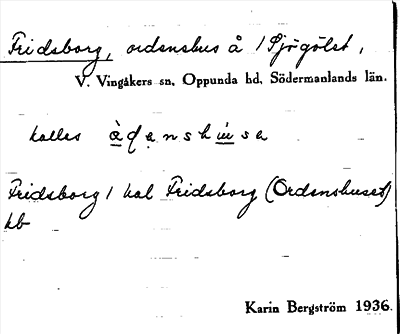 Fridsborg, ordenshus å / Sjögölet,
V. Vingåkers sn, Oppunda hd, Södermanlands län.
kallas
Fridsborg / kal Fridsborg (Ordenshuset)
kb
Karin Bergström 1936.